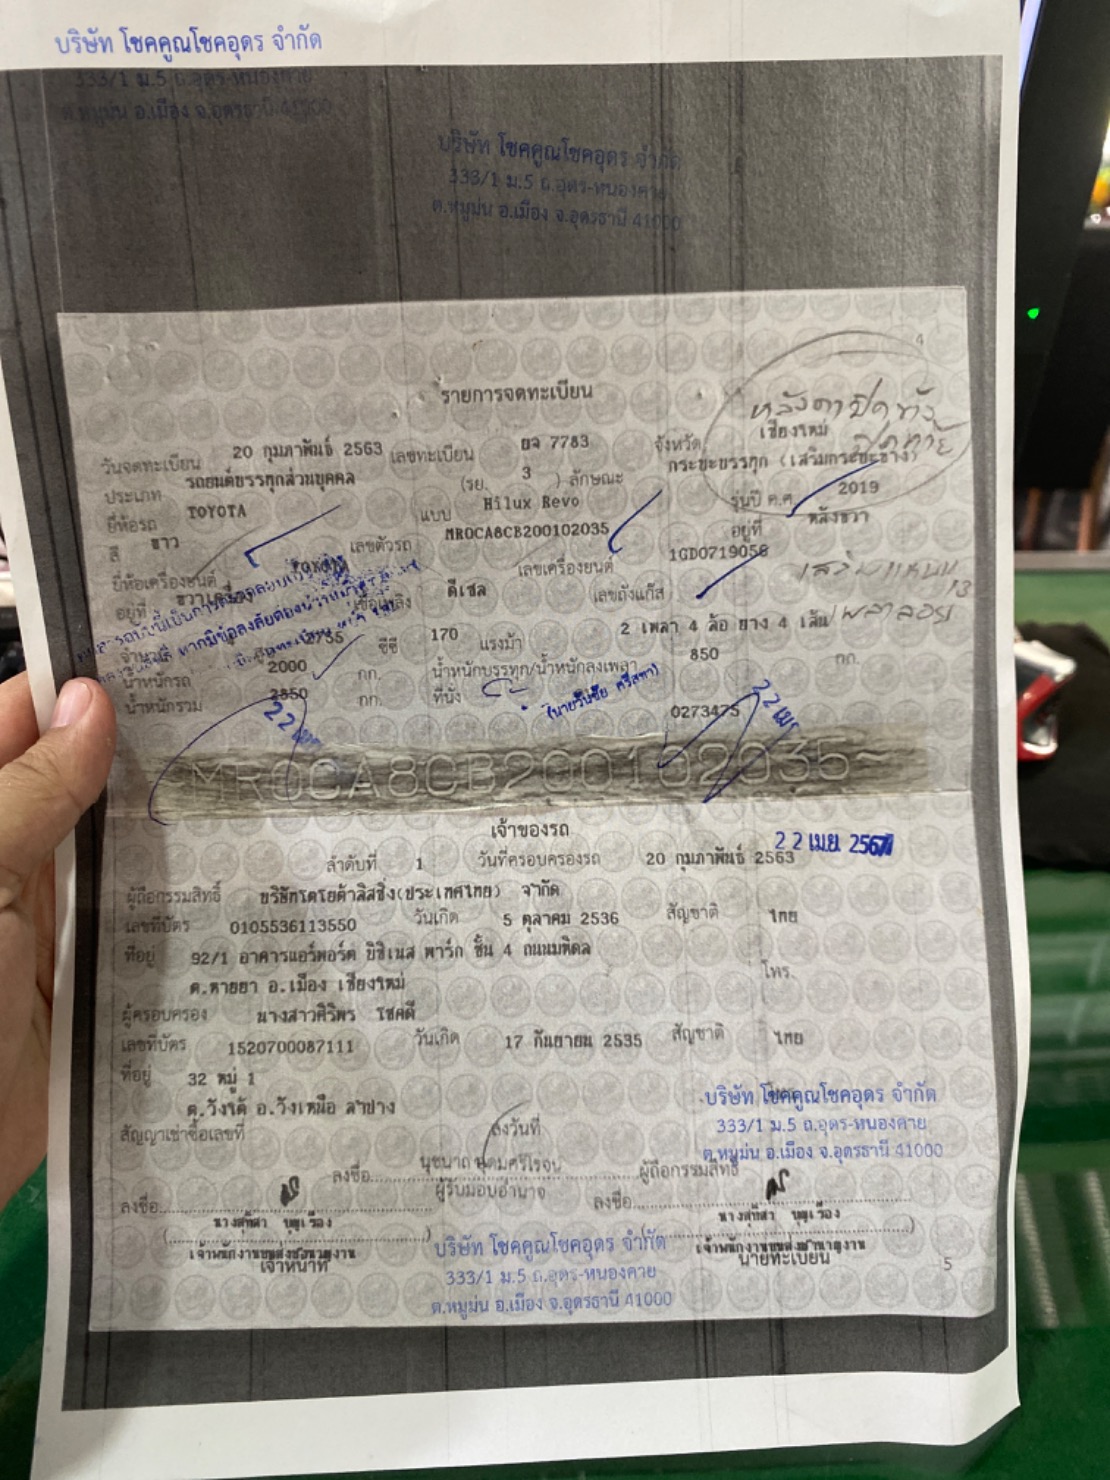 บริษัท โชคคูณโชคอุดร จำกัด
333/1 ม.5 ถ.อุดร-หนองคาย
ต.หมูม่น อ.เมือง จ.อุดรธานี 41000
บริษัท โชคคูณโชคอุดร จำกัด
333/1 ม.5 ถ.อุดร-หนองคาย
ต.หมูม่น อ.เมือง จ.อุดรธานี 41000
4
รายการจดทะเบียน
หลังคาปิดข้าง
ปิดท้าย
วันจดทะเบียน 20 กุมภาพันธ์ 2563 เลขทะเบียน ยจ 7783 จังหวัด เชียงใหม่
ประเภท รถยนต์บรรทุกส่วนบุคคล (รย. 3 ) ลักษณะ กระบะบรรทุก (เสริมกระบะข้าง)
ยี่ห้อรถ TOYOTA แบบ Hilux Revo รุ่นปี ค.ศ. 2019
สี ขาว เลขตัวรถ MR0CA8CB200102035 อยู่ที่ หลังขวา
ยี่ห้อเครื่องยนต์ TOYOTA เลขเครื่องยนต์ 1GD0719058
อยู่ที่ ขวาเครื่อง เชื้อเพลิง ดีเซล เลขถังแก๊ส
เสริมแหนบ
จำนวน 2755 ซีซี 170 แรงม้า 2 เพลา 4 ล้อ ยาง 4 เส้น
น้ำหนักรถ 2000 กก. น้ำหนักบรรทุก/น้ำหนักลงเพลา 850 กก.
น้ำหนักรวม 2850 กก. ที่นั่ง
(นายวันชัย ศรีสทา)
0273475
MR0CA8CB200102035
เจ้าของรถ
22 เม.ย. 2567
ลำดับที่ 1 วันที่ครอบครองรถ 20 กุมภาพันธ์ 2563
ผู้ถือกรรมสิทธิ์ บริษัทโตโยต้าลิสซิ่ง(ประเทศไทย) จำกัด
เลขที่บัตร 0105536113550 วันเกิด 5 ตุลาคม 2536 สัญชาติ ไทย
ที่อยู่ 92/1 อาคารแอร์พอร์ต บิซิเนส พาร์ก ชั้น 4 ถนนมหิดล
ต.หายยา อ.เมือง เชียงใหม่ โทร.
ผู้ครอบครอง นางสาวศิริพร โชคดี
เลขที่บัตร 1520700087111 วันเกิด 17 กันยายน 2535 สัญชาติ ไทย
ที่อยู่ 32 หมู่ 1
ต.วังใต้ อ.วังเหนือ ลำปาง
บริษัท โชคคูณโชคอุดร จำกัด
333/1 ม.5 ถ.อุดร-หนองคาย
ต.หมูม่น อ.เมือง จ.อุดรธานี 41000
สัญญาเช่าซื้อเลขที่ ลงวันที่
ลงชื่อ ผู้ถือกรรมสิทธิ์
ผู้รับมอบอำนาจ
ลงชื่อ ลงชื่อ
นางสุทิสา บุญเรือง นางสุทิสา บุญเรือง
เจ้าพนักงานขนส่งชำนาญงาน เจ้าพนักงานขนส่งชำนาญงาน
เจ้าหน้าที่ นายทะเบียน
5
บริษัท โชคคูณโชคอุดร จำกัด
333/1 ม.5 ถ.อุดร-หนองคาย
ต.หมูม่น อ.เมือง จ.อุดรธานี 41000